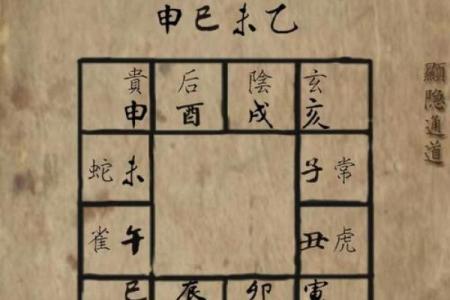 申巳未乙
貴 后 陰 玄
申 酉 戌 亥
蛇 未 子 常
雀 午 丑 虎
巳 辰 卯 寅
顯隐通道